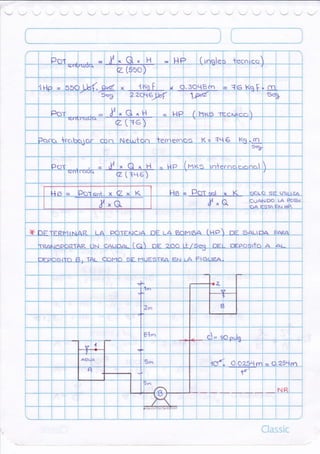 POT entrada = γ x Q x H = HP (ingles tecnico)
η (550)
1Hp = 550 Lbf. pie x 1Kgf x 0.3048m = 76 Kgf. m
Seg 2.2046 Lbf 1 pie Seg
POT entrada = γ x Q x H = HP (MKS TECNICO)
η (76)
Para trabajar con Newton tenemos K = 746 Kg.m
Seg
POT entrada = γ x Q x H = HP (MKS internacional)
η (746)
HB = POT ent. x η x K HB = POT sal x K SOLO SE UTILIZA
γ x Q γ x Q CUANDO LA POTEN
CIA ESTA EN HP.
* DETERMINAR LA POTENCIA DE LA BOMBA (HP) DE SALIDA PARA
TRANSPORTAR UN CAUDAL (Q) DE 200 Lt/Seg DEL DEPOSITO A AL
DEPOSITO B, TAL COMO SE MUESTRA EN LA FIGURA.
2
1m
2m B
61m
d = 10 pulg
1
AGUA 5m
A
10". 0.0254m = 0.254m
1"
5m
B NR
Classic